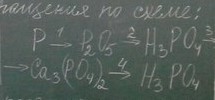 ращения по схеме:
P 1→ P₂O₅ 2→ H₃PO₄ 3→
→ Ca₃(PO₄)₂ 4→ H₃PO₄